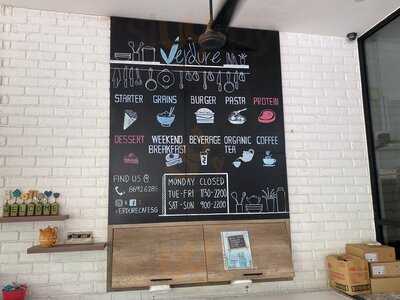 Verdure
STARTER GRAINS BURGER PASTA PROTEIN
DESSERT WEEKEND BREAKFAST BEVERAGE ORGANIC TEA COFFEE
FIND US @
8692 6285
VERDURECAFESG
MONDAY CLOSED
TUE-FRI 1130-2200
SAT-SUN 900-2200